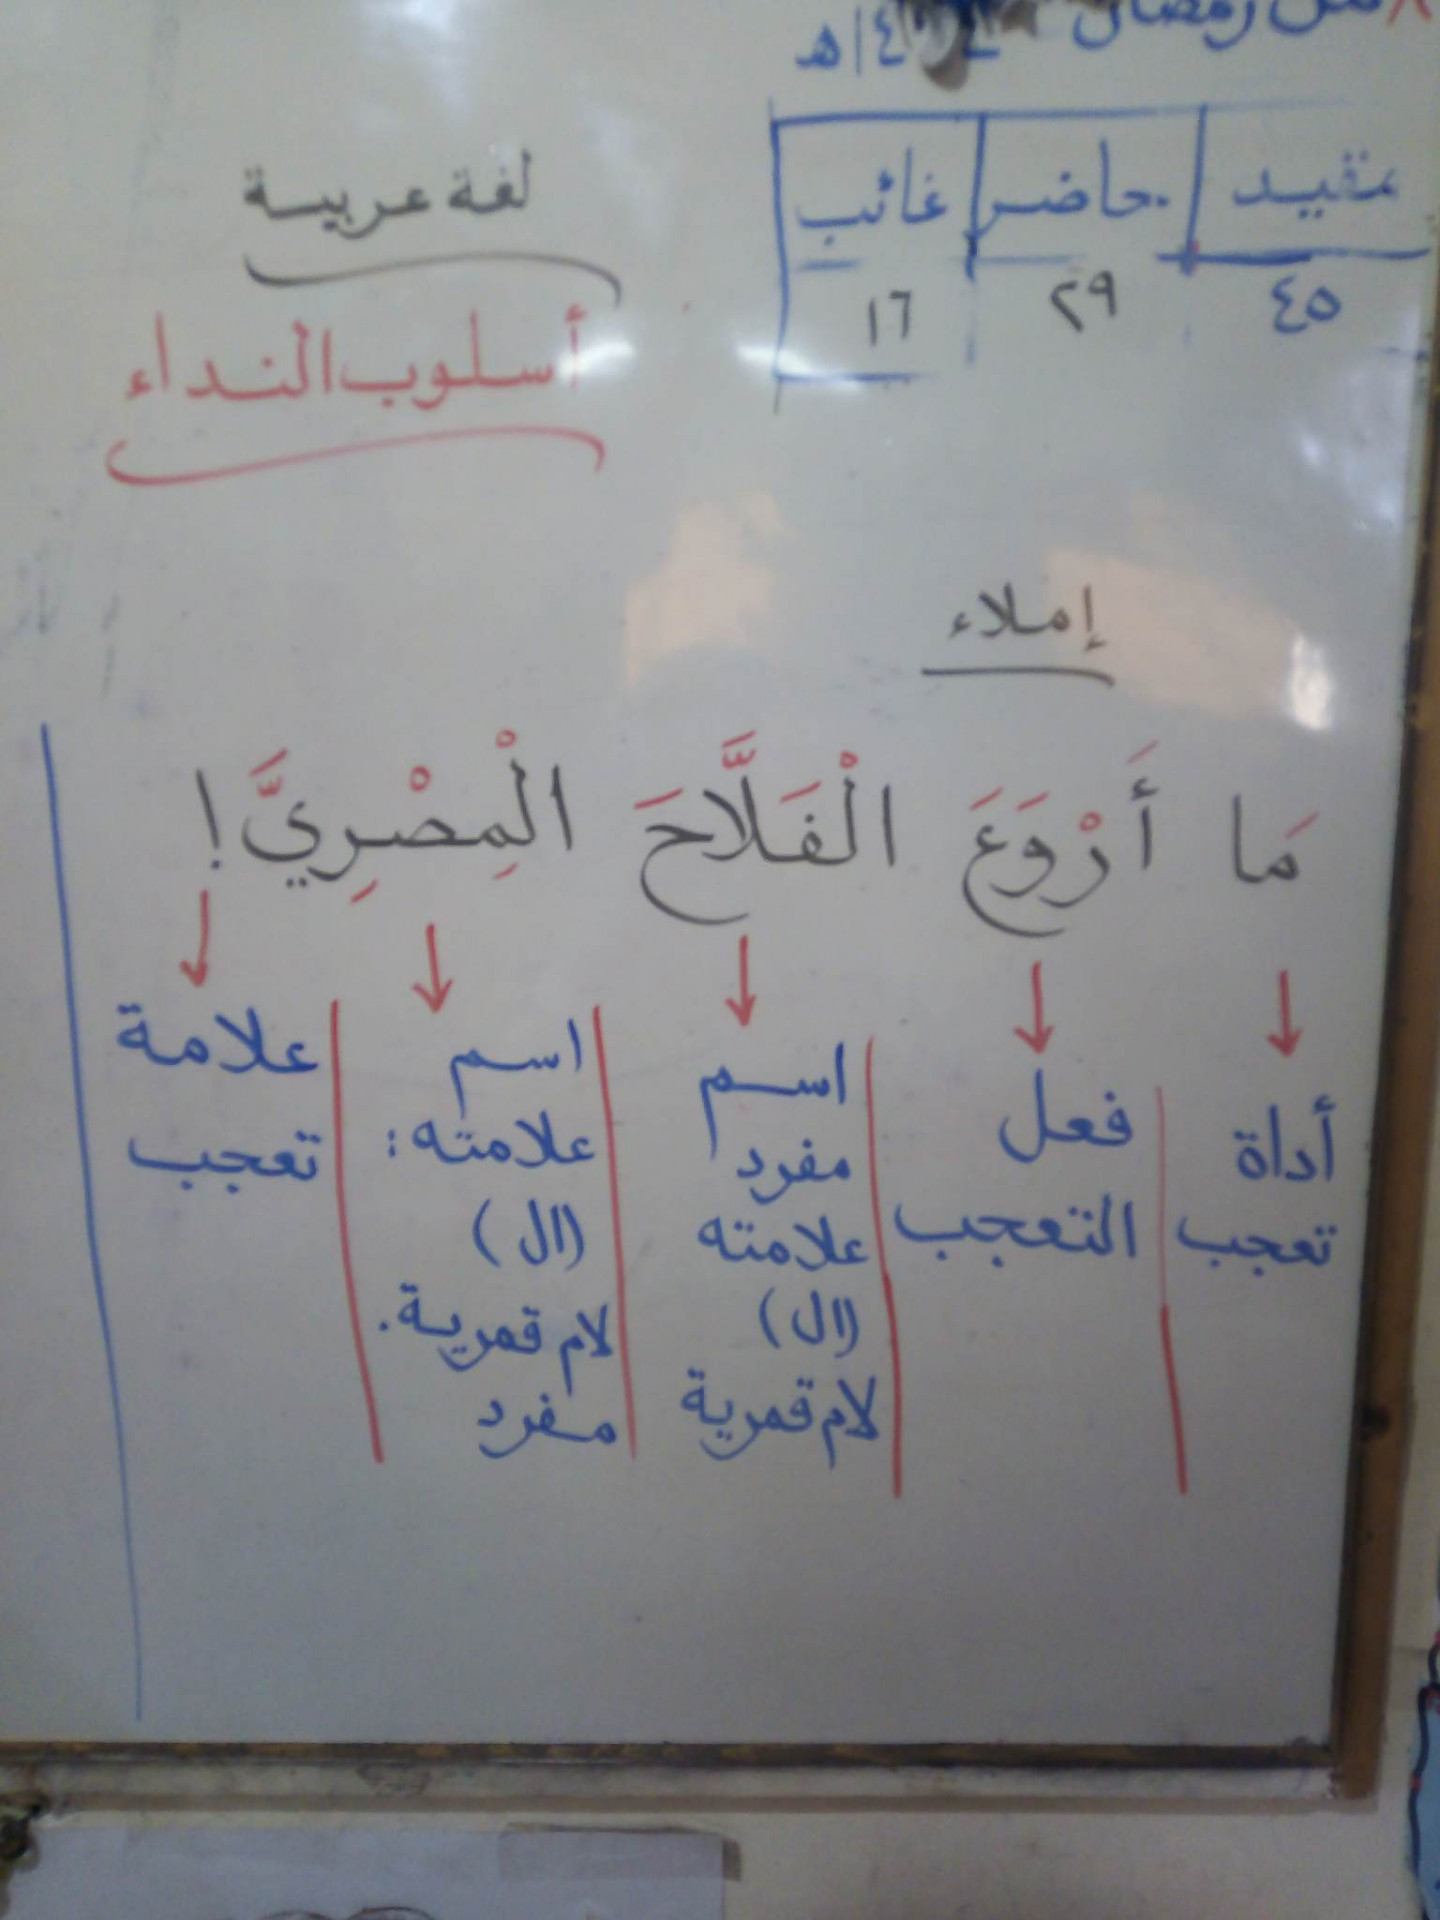 من رمضان
مقيد حاضر غائب
٤٥ ٢٩ ١٦
لغة عربية
أسلوب النداء
إملاء
مَا أَرْوَعَ الْفَلَّاحَ الْمِصْرِيَّ!
أداة تعجب
فعل التعجب
اسم مفرد علامته (ال) لام قمرية
اسم علامته: (ال) لام قمرية. مفرد
علامة تعجب